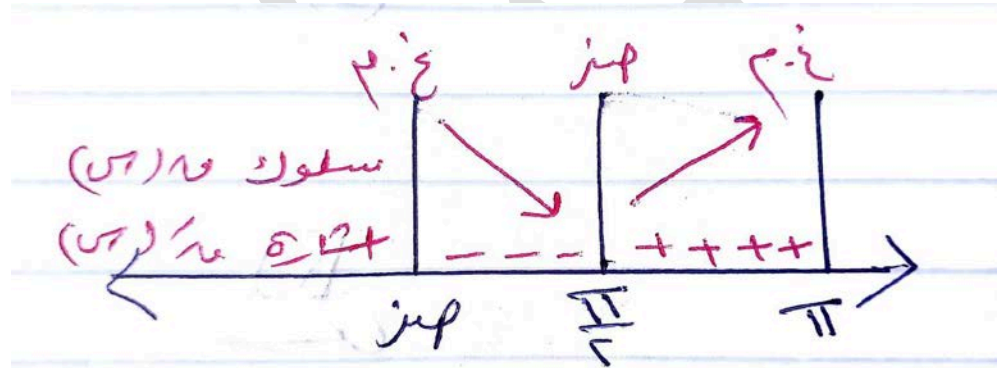 غ.م صفر غ.م
سلوك ق(س)
إشارة قَ(س) - - - + + + +
صفر π/٢ π